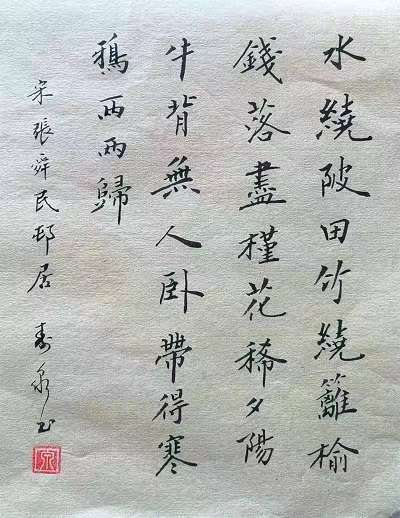 水繞陂田竹繞籬榆
錢落盡槿花稀夕陽
牛背無人卧帶得寒
鴉兩兩歸
宋張舜民邨居 壽泉書
泉